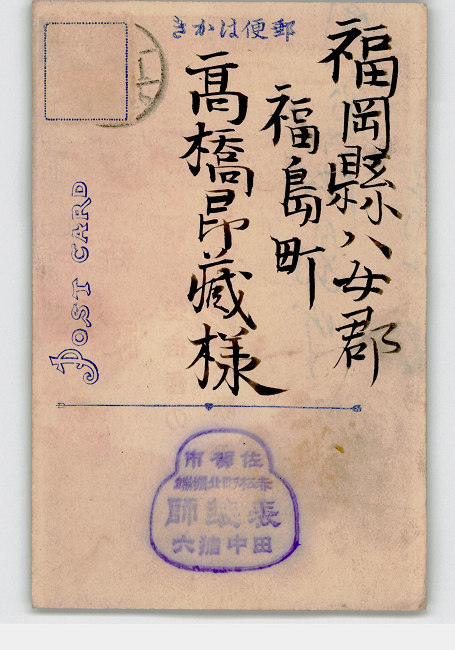 郵便はかき
福岡縣八女郡
福島町
髙橋昂藏様
POST CARD
佐賀市
赤松町北堀端
表装師
田中 六